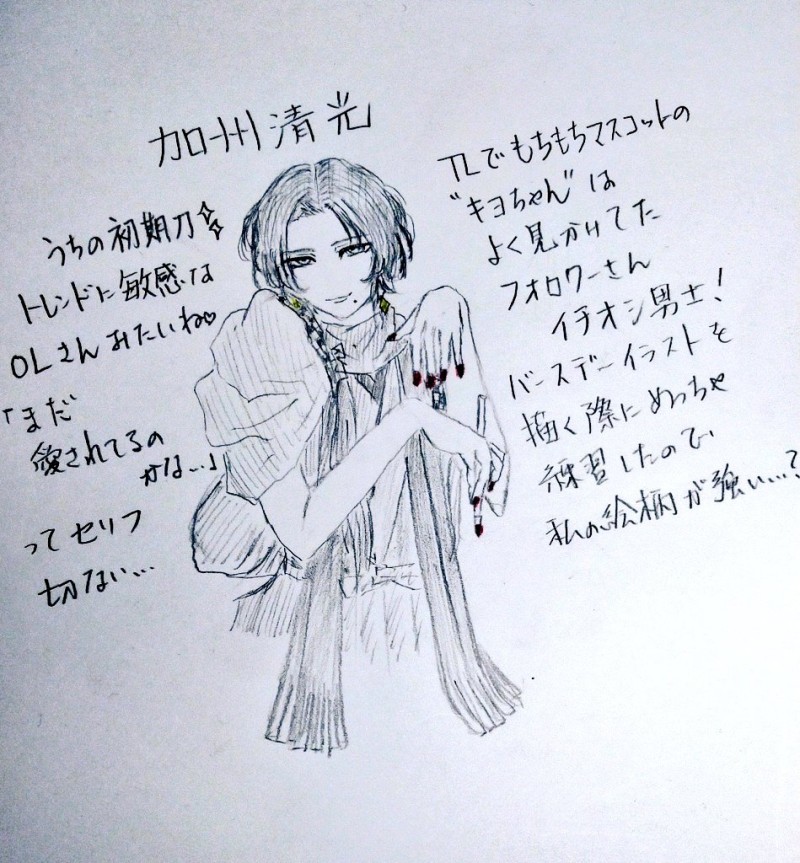 加州清光
うちの初期刀
トレンドに敏感な
OLさんみたいね♡
「まだ
愛されてるの
かな…」
ってセリフ
切ない…
TLでもちもちマスコットの
"キヨちゃん"は
よく見かけてた
フォロワーさん
イチオシ男士!
バースデーイラストを
描く際にめっちゃ
練習したので、
私の絵柄が強い…?